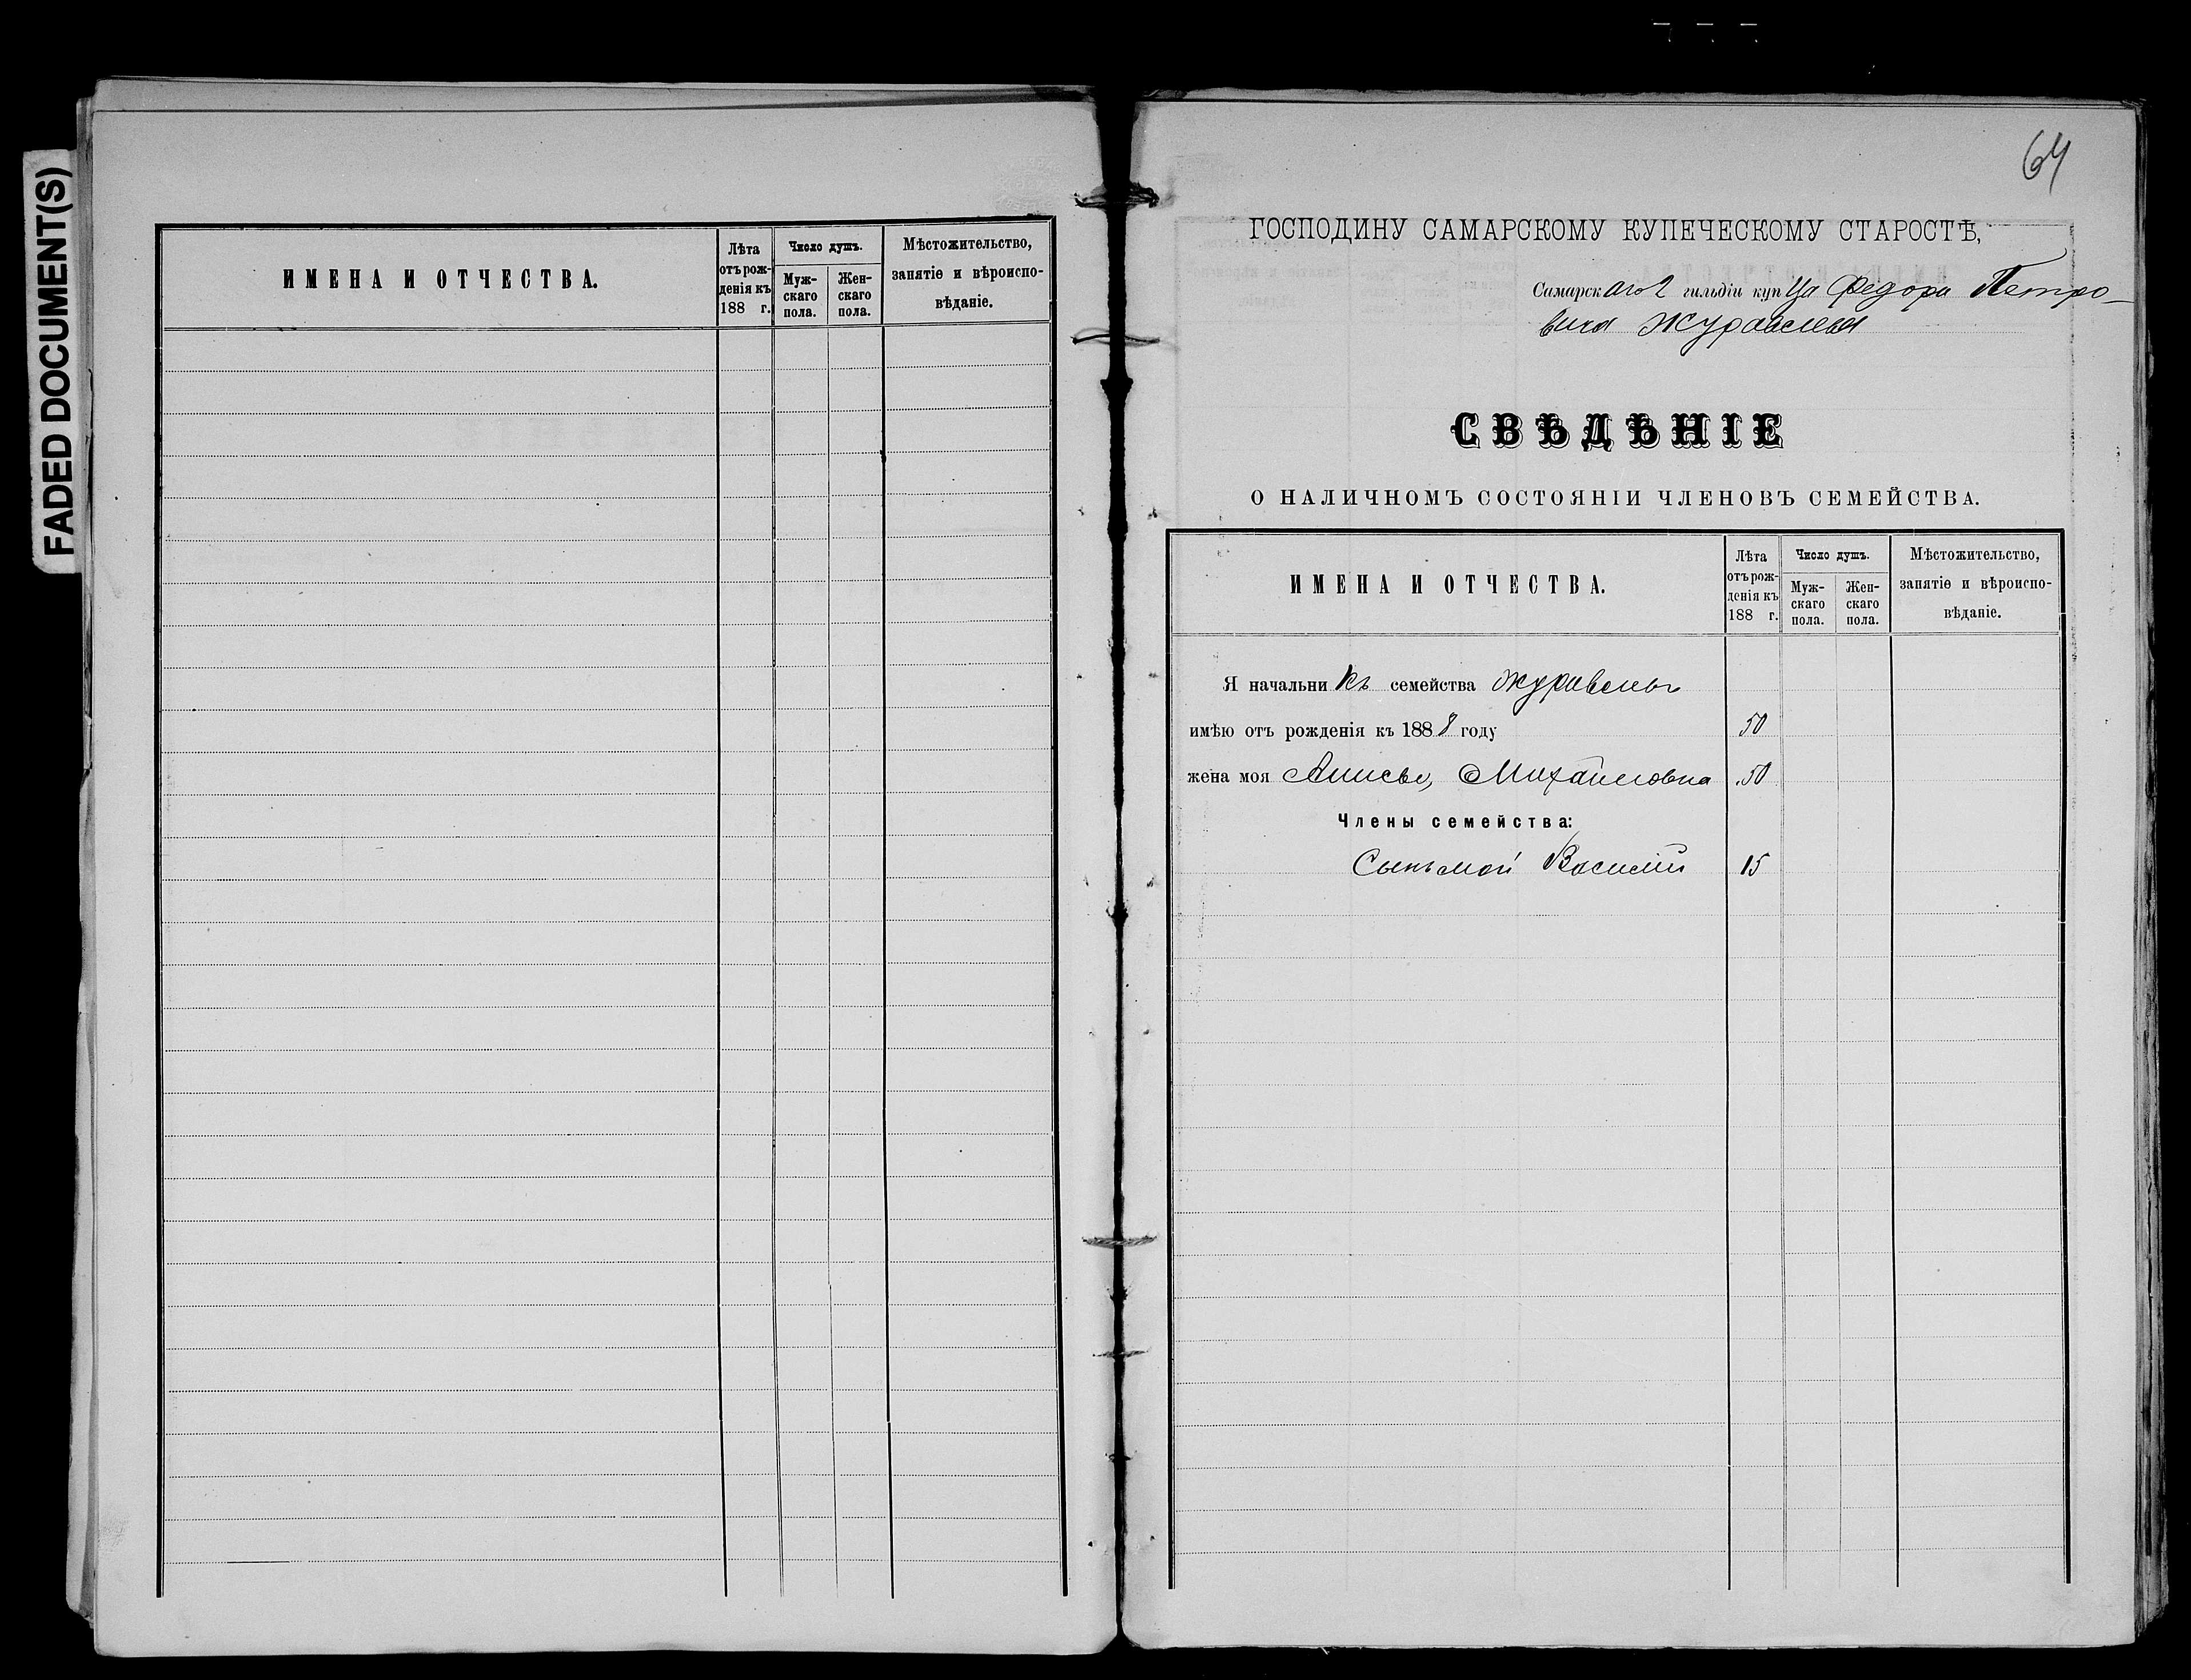 FADED DOCUMENT(S)
ИМЕНА И ОТЧЕСТВА.
Лѣта
отъ рож-
денія къ
188 г.
Число душъ.
Муж-
скаго
пола.
Жен-
скаго
пола.
Мѣстожительство,
занятіе и вѣроиспо-
вѣданіе.
64
ГОСПОДИНУ САМАРСКОМУ КУПЕЧЕСКОМУ СТАРОСТѢ,
Самарскаго 2 гильдіи купца Федора Петро-
вича Журавлева
СВѢДѢНІЕ
О НАЛИЧНОМЪ СОСТОЯНІИ ЧЛЕНОВЪ СЕМЕЙСТВА.
ИМЕНА И ОТЧЕСТВА.
Лѣта
отъ рож-
денія къ
188 г.
Число душъ.
Муж-
скаго
пола.
Жен-
скаго
пола.
Мѣстожительство,
занятіе и вѣроиспо-
вѣданіе.
Я начальникъ семейства Журавлевъ
имѣю отъ рожденія къ 1888 году 50
жена моя Анисья Михайловна 50
Члены семейства:
Сынъ мой Василій 15